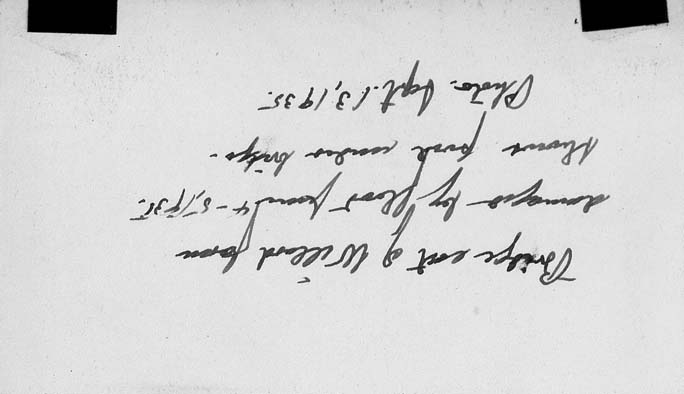 Bridge east of Willard farm
damaged by flood June 4-5, 1935.
Shows pool under bridge.
Photo. Sept. 13, 1935.